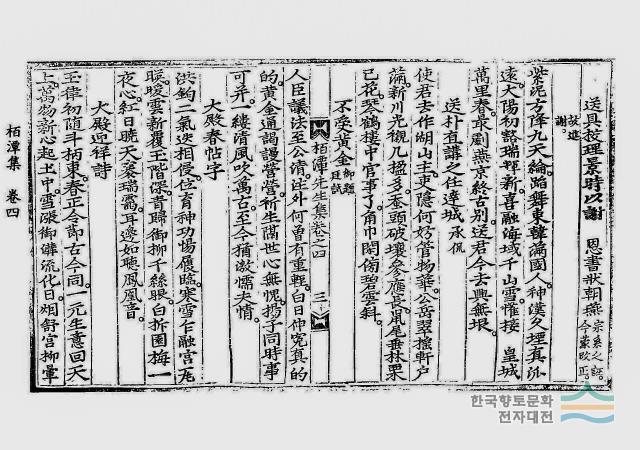 送具校理景時以謝 恩書狀朝燕 宗系之誣 今蒙改正 故進謝
紫泥方降九天綸蹈舞東韓滿國人神漢久埋真派
遠太陽初豁瑞輝新喜融海域千山雪惟接 皇城
萬里春最劇燕京終古別送君今去興無垠
送朴直講之任達城 承侃
使君去作湖山主吏隱何妨管物華公岳翠搖軒戶
滿新川光襯几榲多蠶頭破壤參應長鼠尾垂林果
已花琴鶴樓中官事了角巾閑倚碧雲斜
不受黃金 御題 廷試
栢潭先生集卷之四 三
人臣議法至公淸注外何曾有重輕白日仲寃真的
的黃金通謁謾營營祈生謀世心無愧揚子同時事
可并一縷清風吹萬古至今猶激懦夫情
大殿春帖字
洪鈞二氣迭相侵位育神功惕履臨寒雪乍融宮瓦
暖暖雲新覆玉階深青歸御柳千絲眼白折園梅一
夜心紅日曉天榮瑞靄耳邊如聽鳳凰音
大殿迎祥詩
玉律初隨斗柄東春正令節古今同一元生意回天
上萬物新心起土中雪滌御溝流化日烟舒宮柳暈
栢潭集 卷四
한국향토문화
전자대전